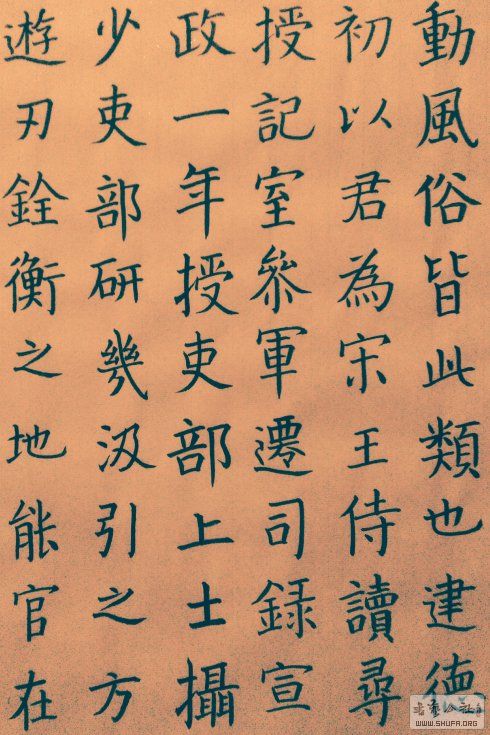 動風俗皆此類也建德
初以君為宋王侍讀尋
授記室叅軍遷司錄宣
政一年授吏部上士攝
少吏部研幾汲引之方
遊刃銓衡之地能官在
WWW.SHUFA.ORG